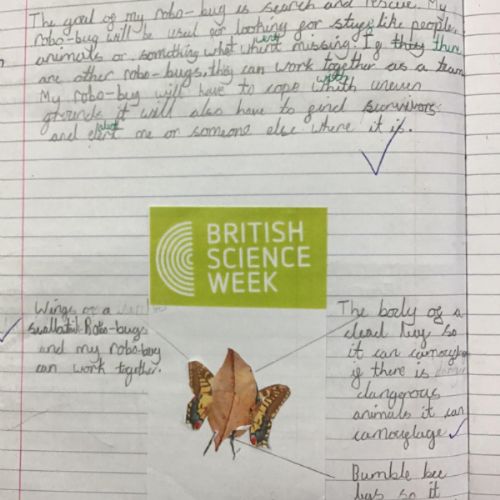 The goal of my robo-bug is search and rescue. My
robo-bug will be used for looking for stuff like people,
animals or something what went missing. If they there
are other robo-bugs, they can work together as a team
My robo-bug will have to cope with uneven
grounds it will also have to find survivors
and alert me or someone else where it is.
BRITISH
SCIENCE
WEEK
Wings of a
swallowtail Robo-bugs
and my robo-bug
can work together.
The body of a
dead leaf so
it can camouflage
if there is
dangerous
animals it can
camouflage
Bumble bee
legs so it